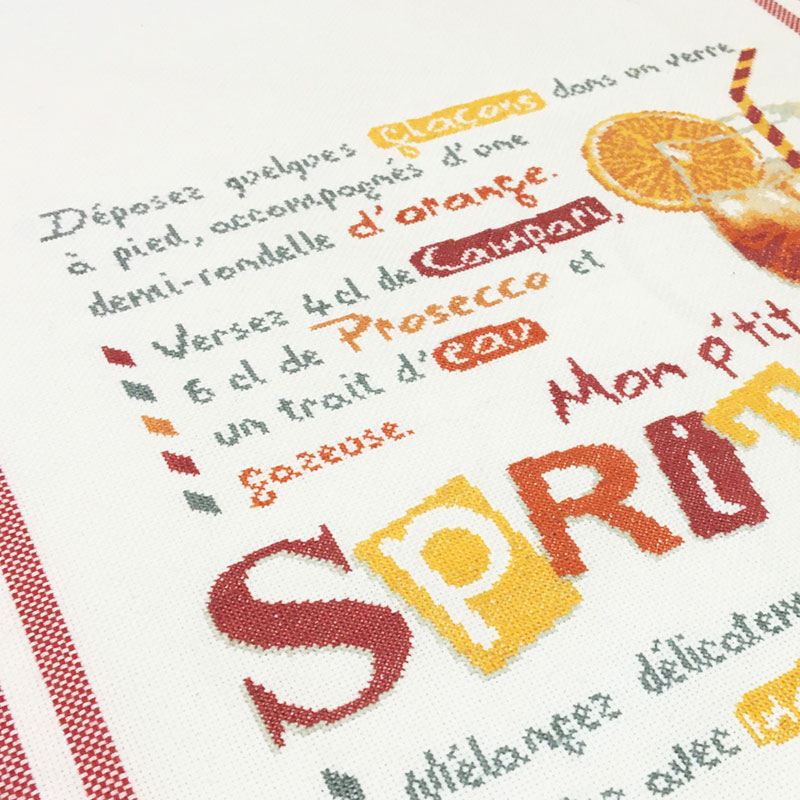 Déposez quelques glaçons dans un verre
à pied, accompagnés d'une
demi-rondelle d'orange.
Versez 4 cl de Campari,
6 cl de Prosecco et
un trait d'eau
gazeuse.
Mon p'tit
SPRi
Mélangez
délicatem
avec